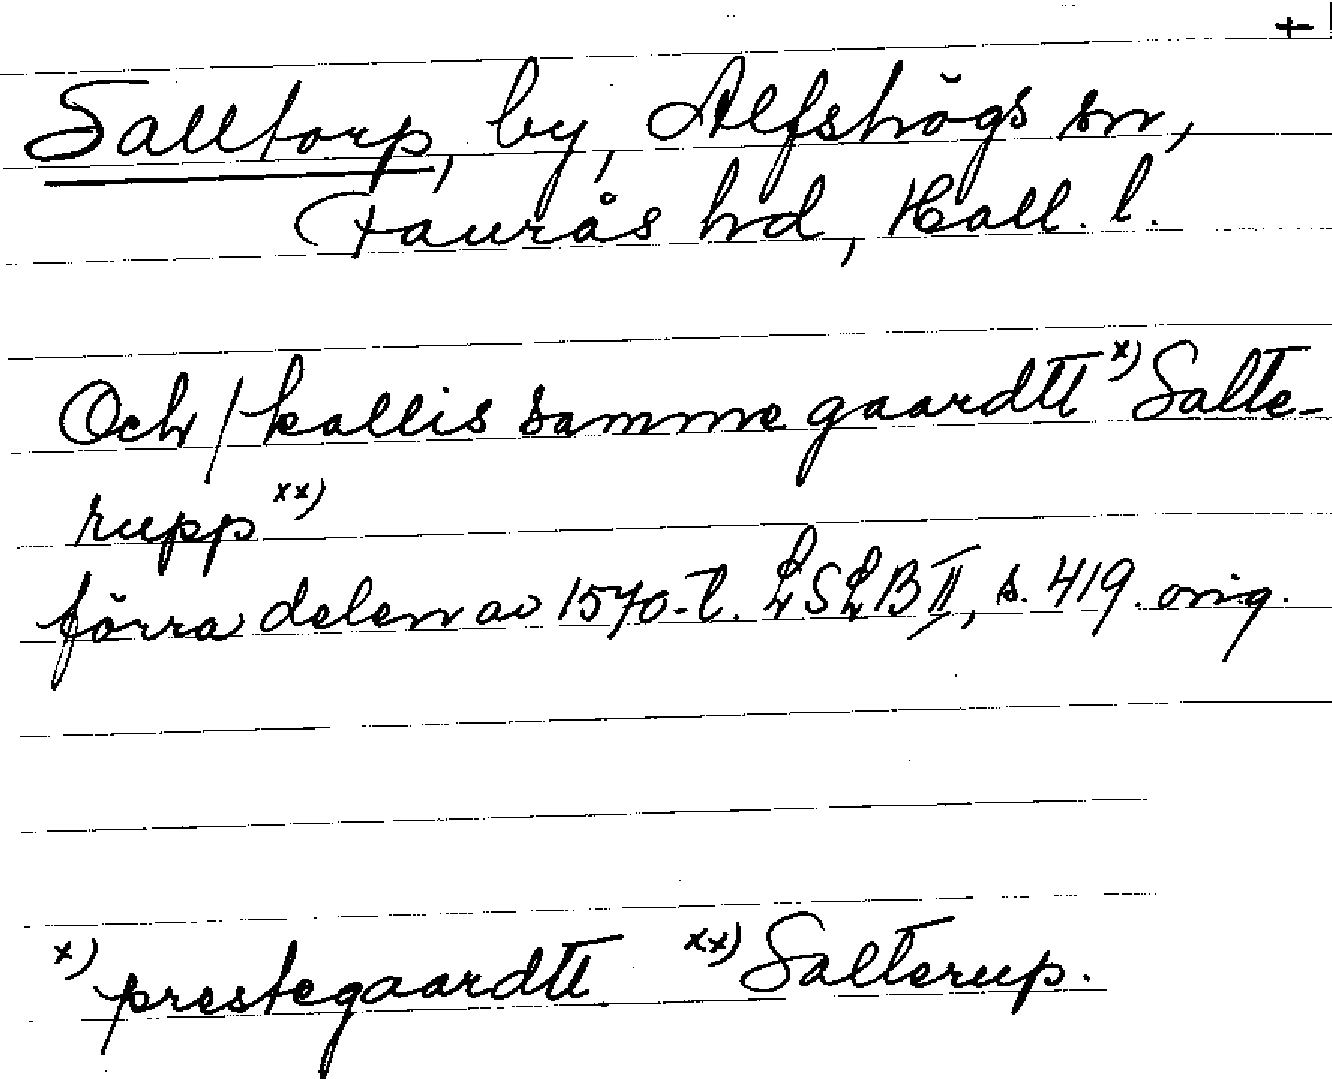 +
Salltorp, by, Alfshögs sn,
Faurås hd, Hall. l.
Och / kallis samme gaardtt x) Salte-
rupp xx)
förra delen av 1570-t. LSLB II, s. 419. orig.
x) prestegaardtt xx) Salterup.